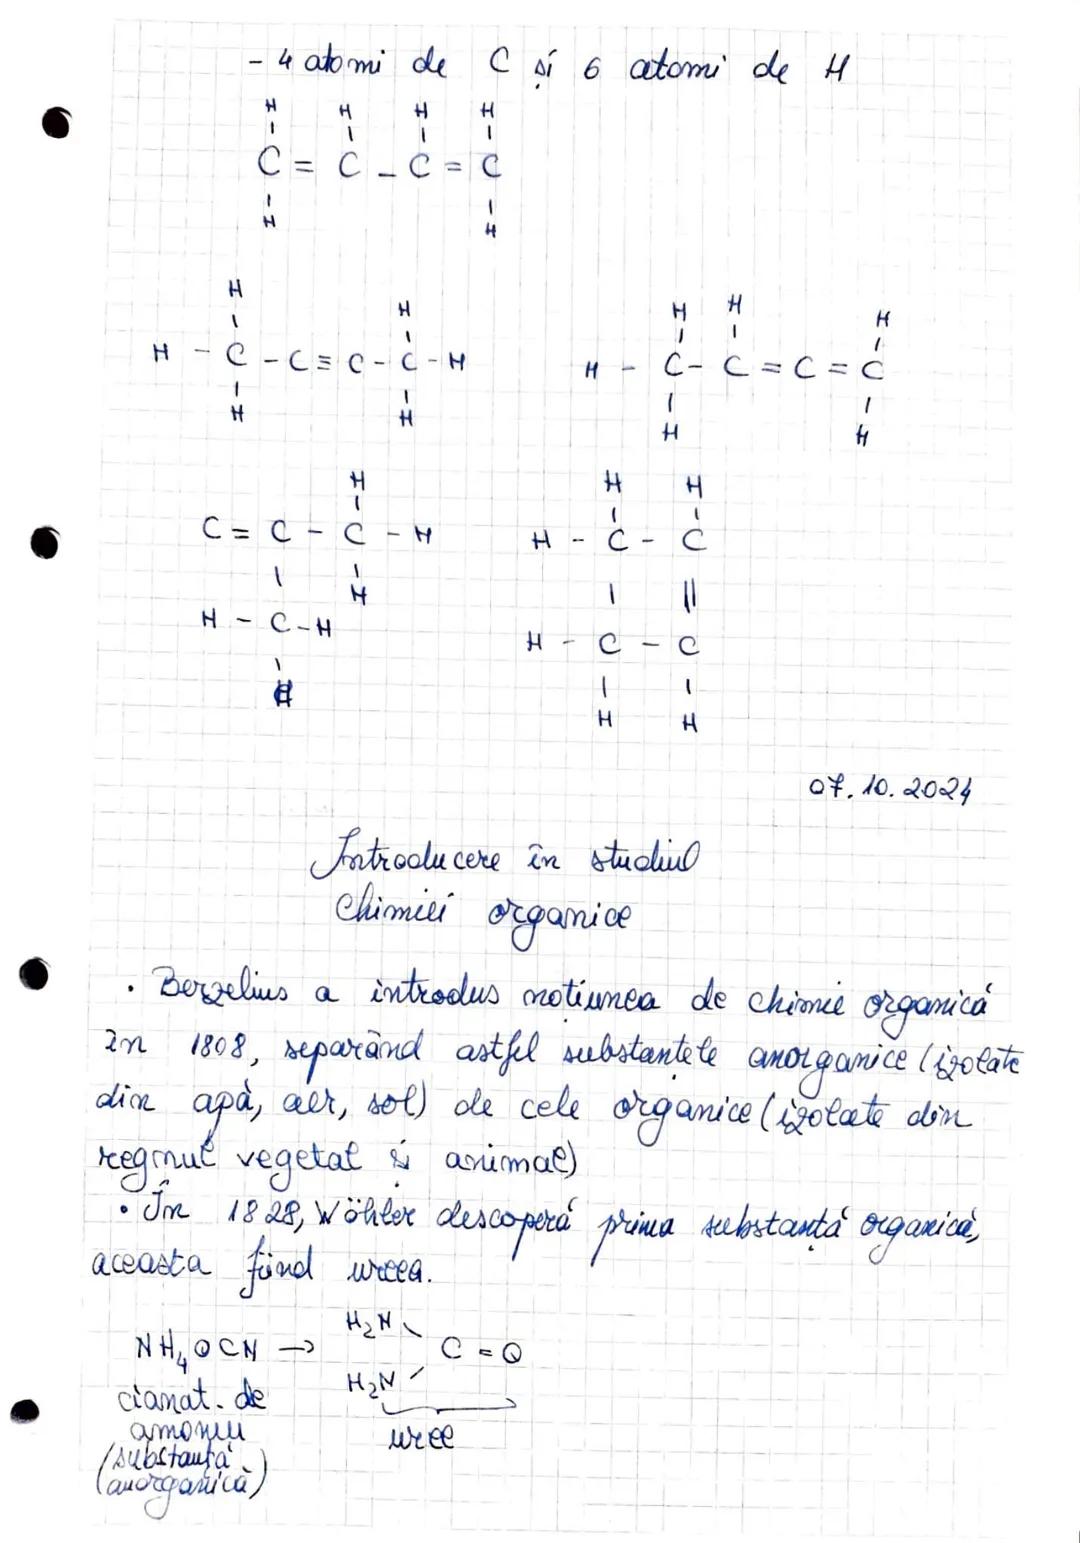 - 4 atomi de C și 6 atomi de H
H H H H
C = C - C = C
H H
H H H H H
H - C - C ≡ C - C - H H - C - C = C = C
H H H H
H H H
C = C - C - H H - C - C
H
H - C - H H - C - C
H H H
07.10.2024
Introducere în studiul
Chimiei organice
. Berzelius a introdus notiunea de chimie organică
în 1808, separând astfel substanțele anorganice (izolate
din apă, aer, sol) de cele organice (izolate din
regnul vegetal și animal)
• În 1828, Wöhler descoperă prima substanță organică,
aceasta fiind ureea.
H₂N
NH₄OCN → C = O
H₂N
cianat de
amoniu uree
(substanță
anorganică)